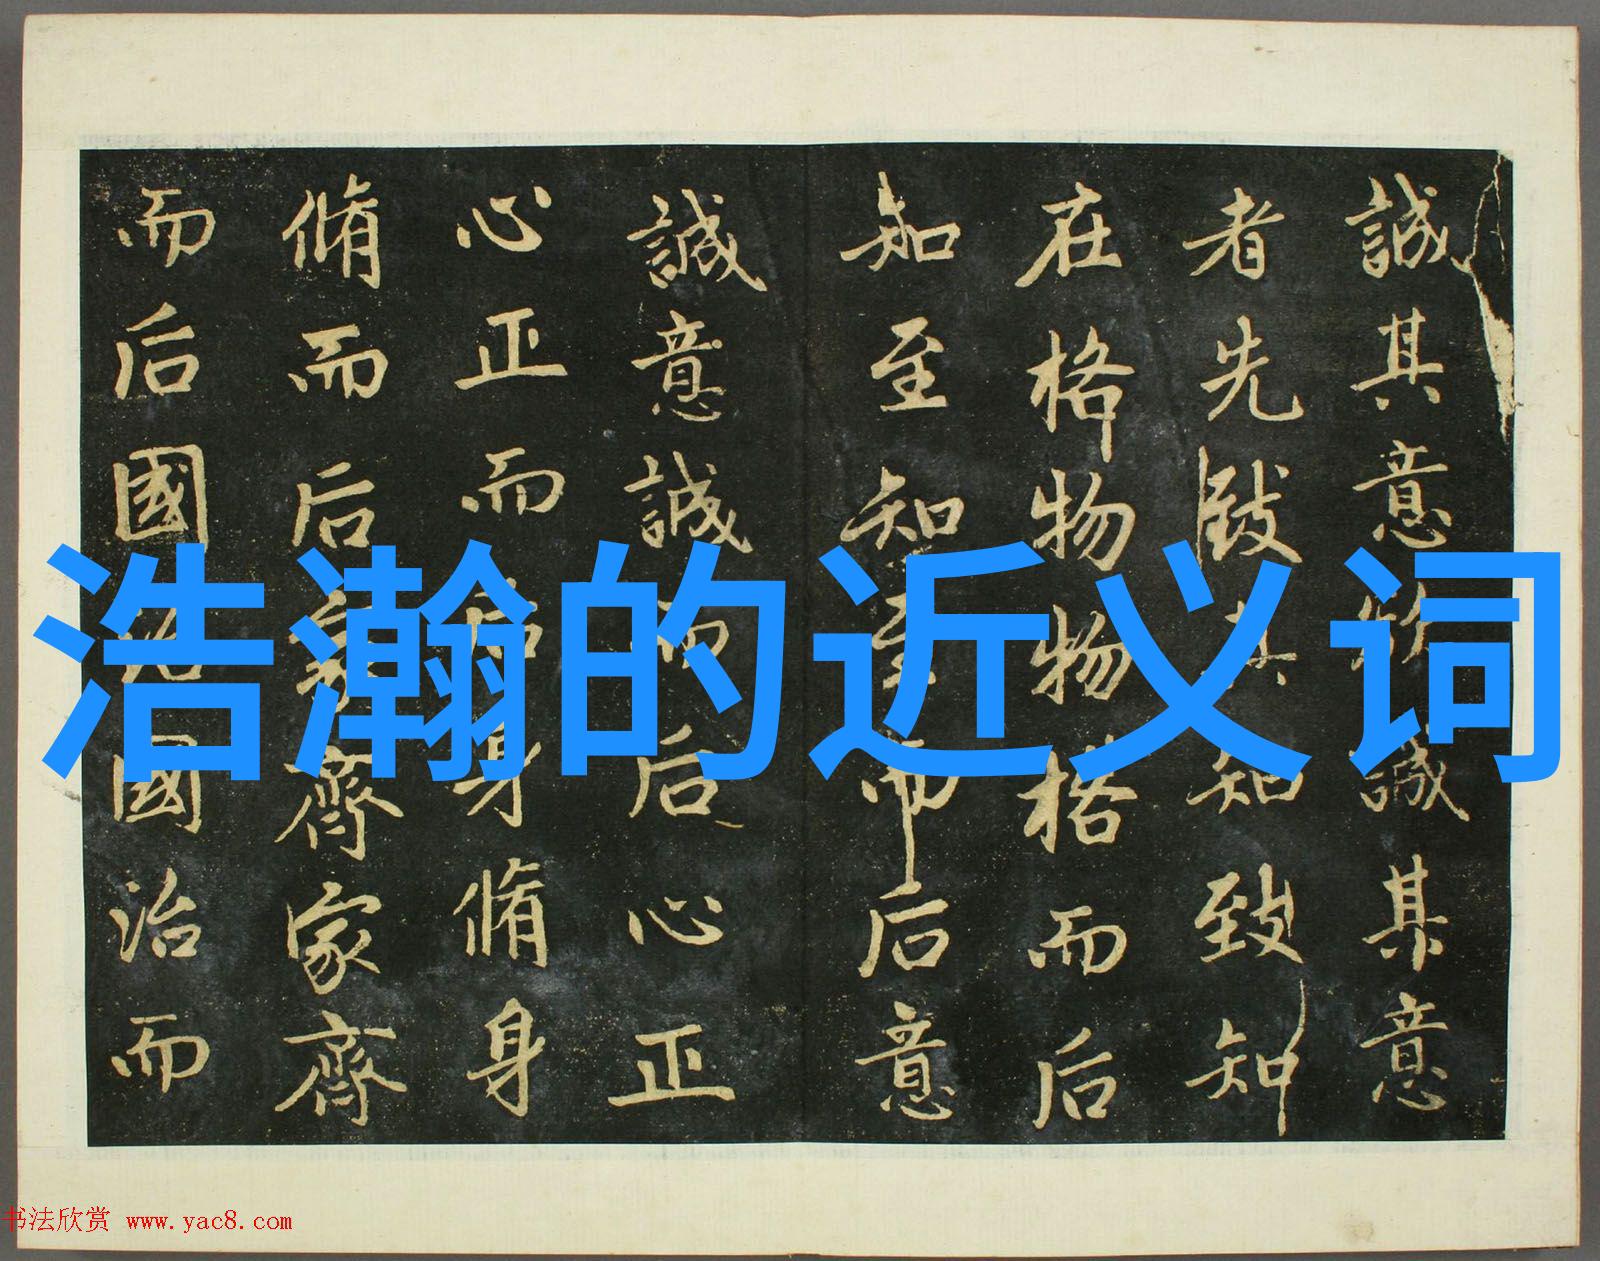 浩瀚的近义词
誠其意欲誠其意
者先致其知致知
在格物物格而后
知至知至而后意
誠意誠而后心正
心正而后身脩身
脩而后家齊家齊
而后國治國治而
书法欣赏 www.yac8.com